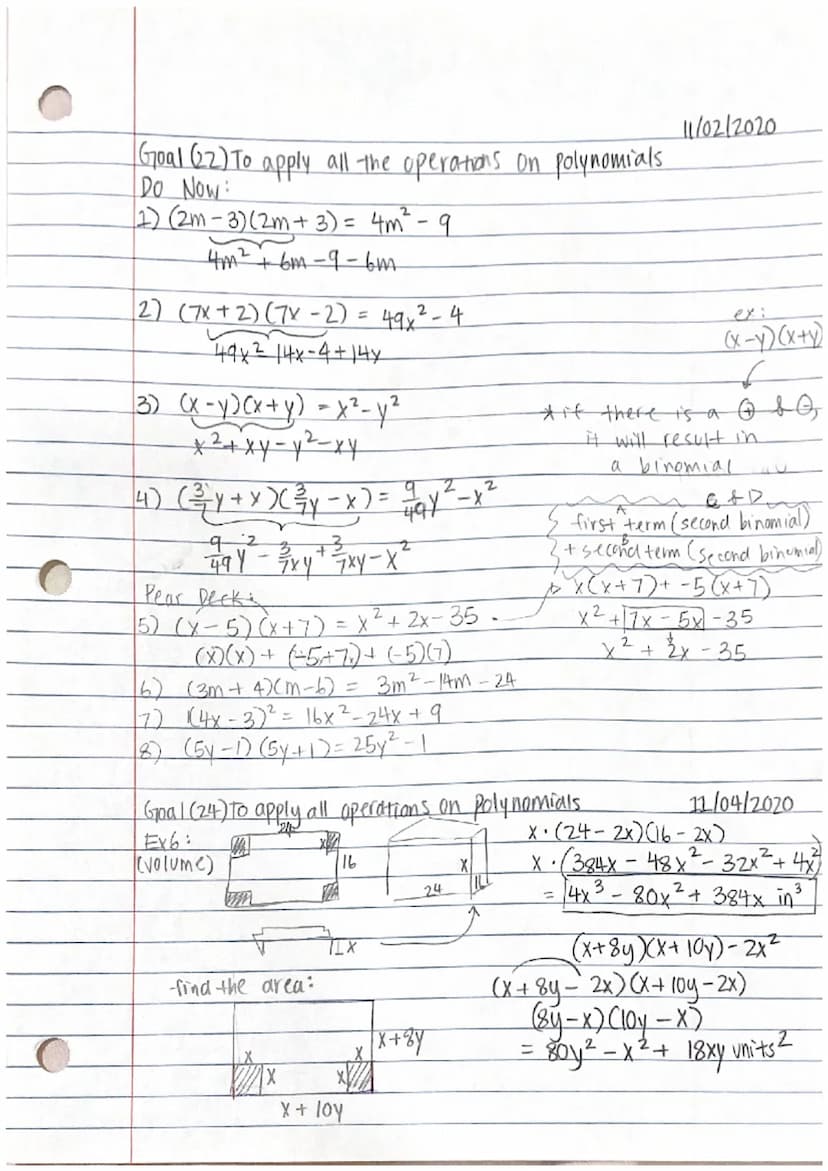 11/02/2020
Goal (22) To apply all the operations on polynomials
Do Now:
1) (2m - 3)(2m + 3) = 4m² - 9
4m² + 6m - 9 - 6m
2) (7x + 2)(7x - 2) = 49x² - 4
49x² 14x - 4 + 14x
ex:
(x - y)(x + y)
3) (x - y)(x + y) = x² - y²
x² + xy - y² - xy
* if there is a ⊕ & ⊖,
it will result in
a binomial
4) (3/7y + x)(3/7y - x) = 9/49y² - x²
9/49y² - 3/7xy + 3/7xy - x²
C & D
first A term (second binomial)
+ second B term (second binomial)
x(x + 7) + -5(x + 7)
x² + 7x - 5x - 35
x² + 2x - 35
Pear Deck:
5) (x - 5)(x + 7) = x² + 2x - 35
(x)(x) + (-5+7) + (-5)(7)
6) (3m + 4)(m - 6) = 3m² - 14m - 24
7) (4x - 3)² = 16x² - 24x + 9
8) (5y - 1)(5y + 1) = 25y² - 1
Goal (24) To apply all operations on Polynomials 11/04/2020
Ex6:
(volume)
24
x
16
x
24
16
x
x · (24 - 2x)(16 - 2x)
x · (384x - 48x² - 32x² + 4x²)
= 4x³ - 80x² + 384x in³
-find the area:
x + 8y
x
x
x
x
x + 10y
(x + 8y)(x + 10y) - 2x²
(x + 8y - 2x)(x + 10y - 2x)
(8y - x)(10y - x)
= 80y² - x² + 18xy units²